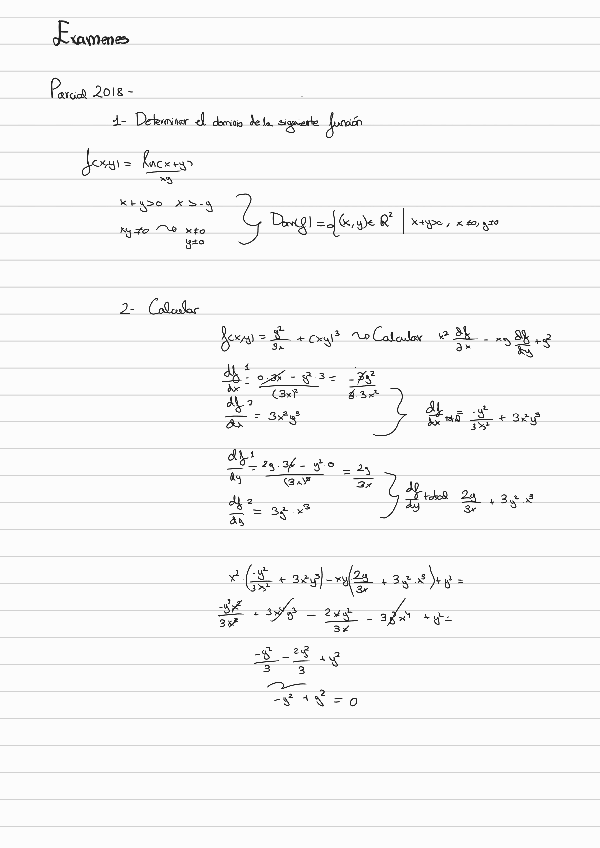 Examenes
Parcial 2018-
1- Determinar el dominio de la siguiente función
f(x,y) = ln(x+y) / xy
x+y>0 x>-y
xy≠0 ⤳ x≠0
y≠0
Dom(f) = {(x,y)∈ R² | x+y>0, x≠0, y≠0
2- Calcular
f(x,y) = y²/3x + (xy)³ ⤳ Calcular x² df/dx - xy df/dy + y²
df/dx ¹ = 0·3x - y²·3 / (3x)² = -3y² / 3·3x²
df/dx ² = 3x²y³
df/dx = -y²/3x² + 3x²y³
df/dy ¹ = 2y·3x - y²·0 / (3x)² = 2y/3x
df/dy ² = 3y²·x³
df/dy total 2y/3x + 3y²·x³
x²·(-y²/3x² + 3x²y³) - xy(2y/3x + 3y²·x³) + y² =
-y²x²/3x² + 3x⁴y³ - 2xy²/3x - 3y³x⁴ + y² =
-y²/3 - 2y²/3 + y²
-y² + y² = 0